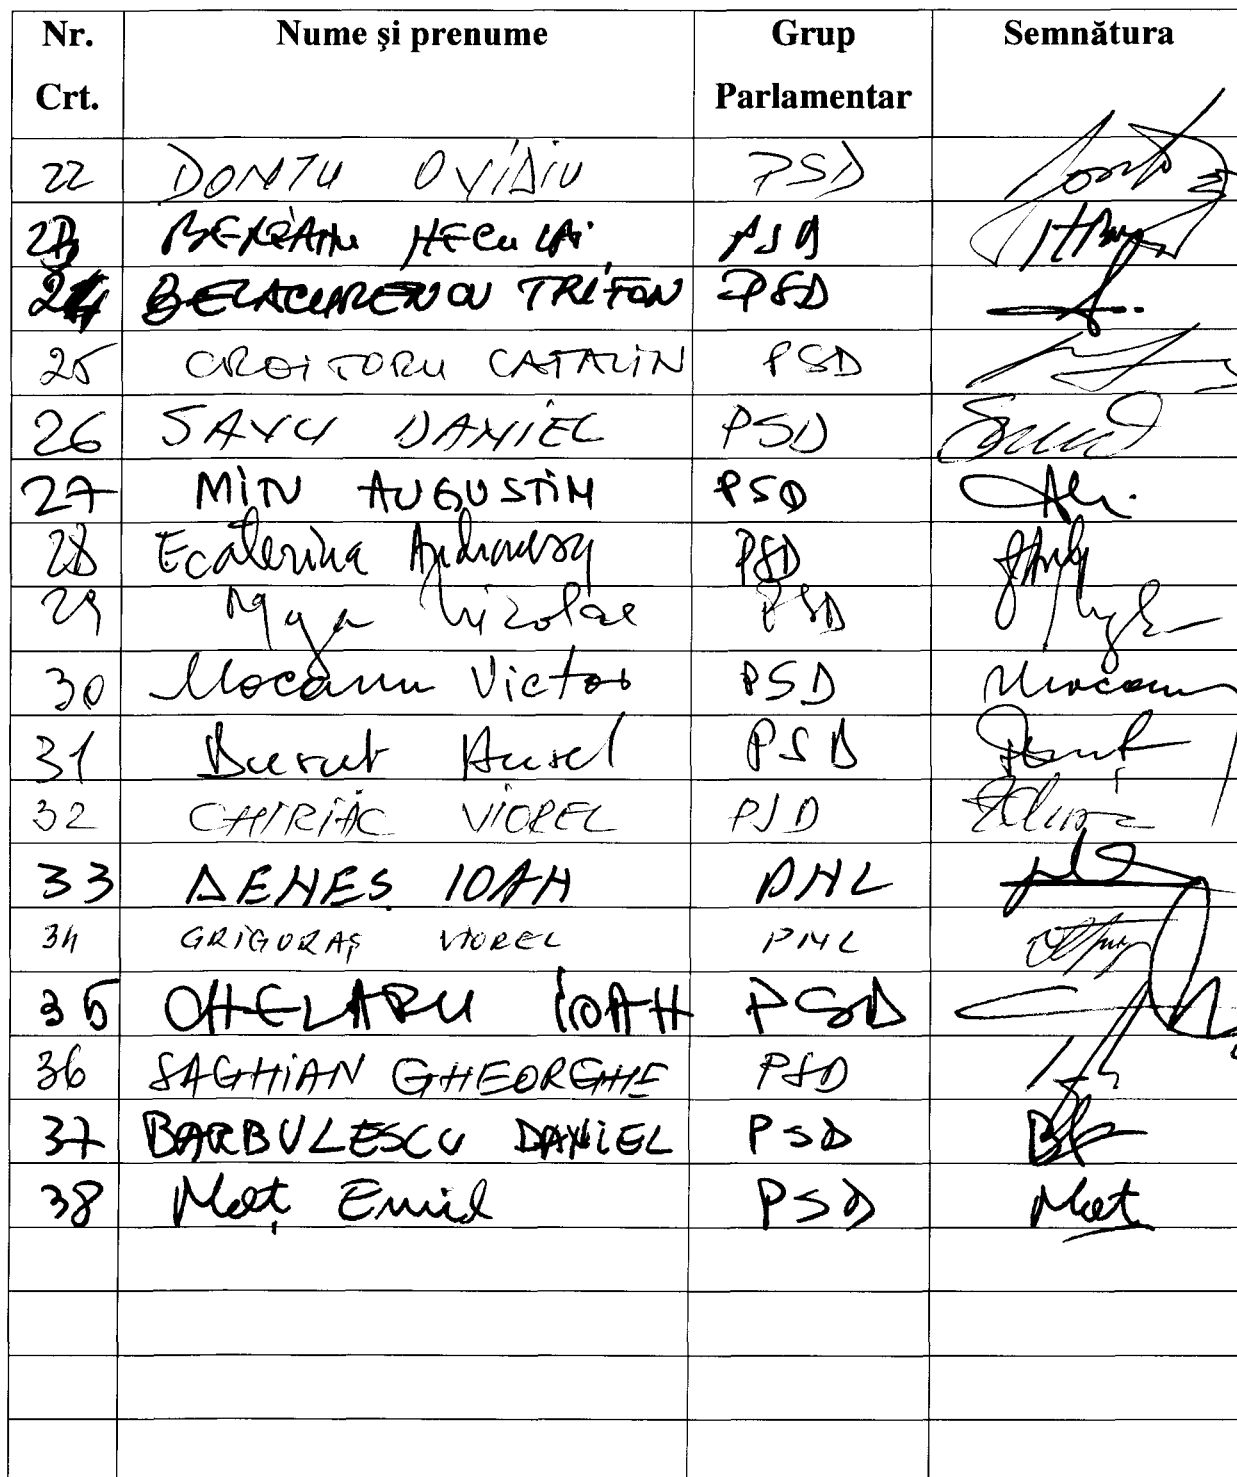 Nr. Crt. Nume şi prenume Grup Parlamentar Semnătura
22 DONTU OVIDIU PSD
23 BEREANU NECULAI PSD
24 BELACURENCU TRIFON PSD
25 CROITORU CATALIN PSD
26 SAVU DANIEL PSD
27 MITU AUGUSTIN PSD
28 Ecaterina Andronescu PSD
29 Moga Nicolae PSD
30 Mocanu Victor PSD Mocanu
31 Aurel PSD
32 CHIRIAC VIOREL PSD
33 DENES IOAN PNL
34 GRIGORAŞ VIOREL PNL
35 CHELARU IOAN PSD
36 SAGHIAN GHEORGHE PSD
37 BARBULESCU DANIEL PSD
38 Maţ Emil PSD Maţ